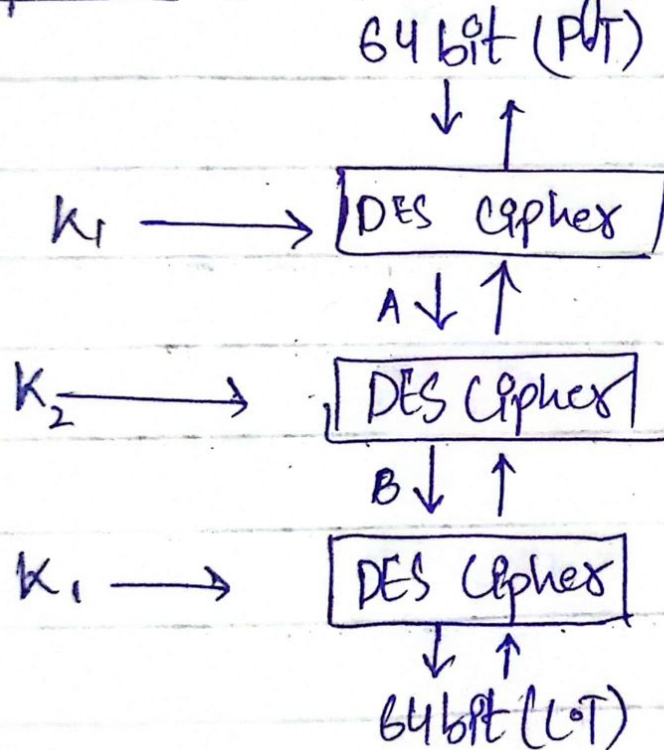 64 bit (P.T)
K₁ → DES Cipher
A
K₂ → DES Cipher
B
K₁ → DES Cipher
64 bit (C.T)